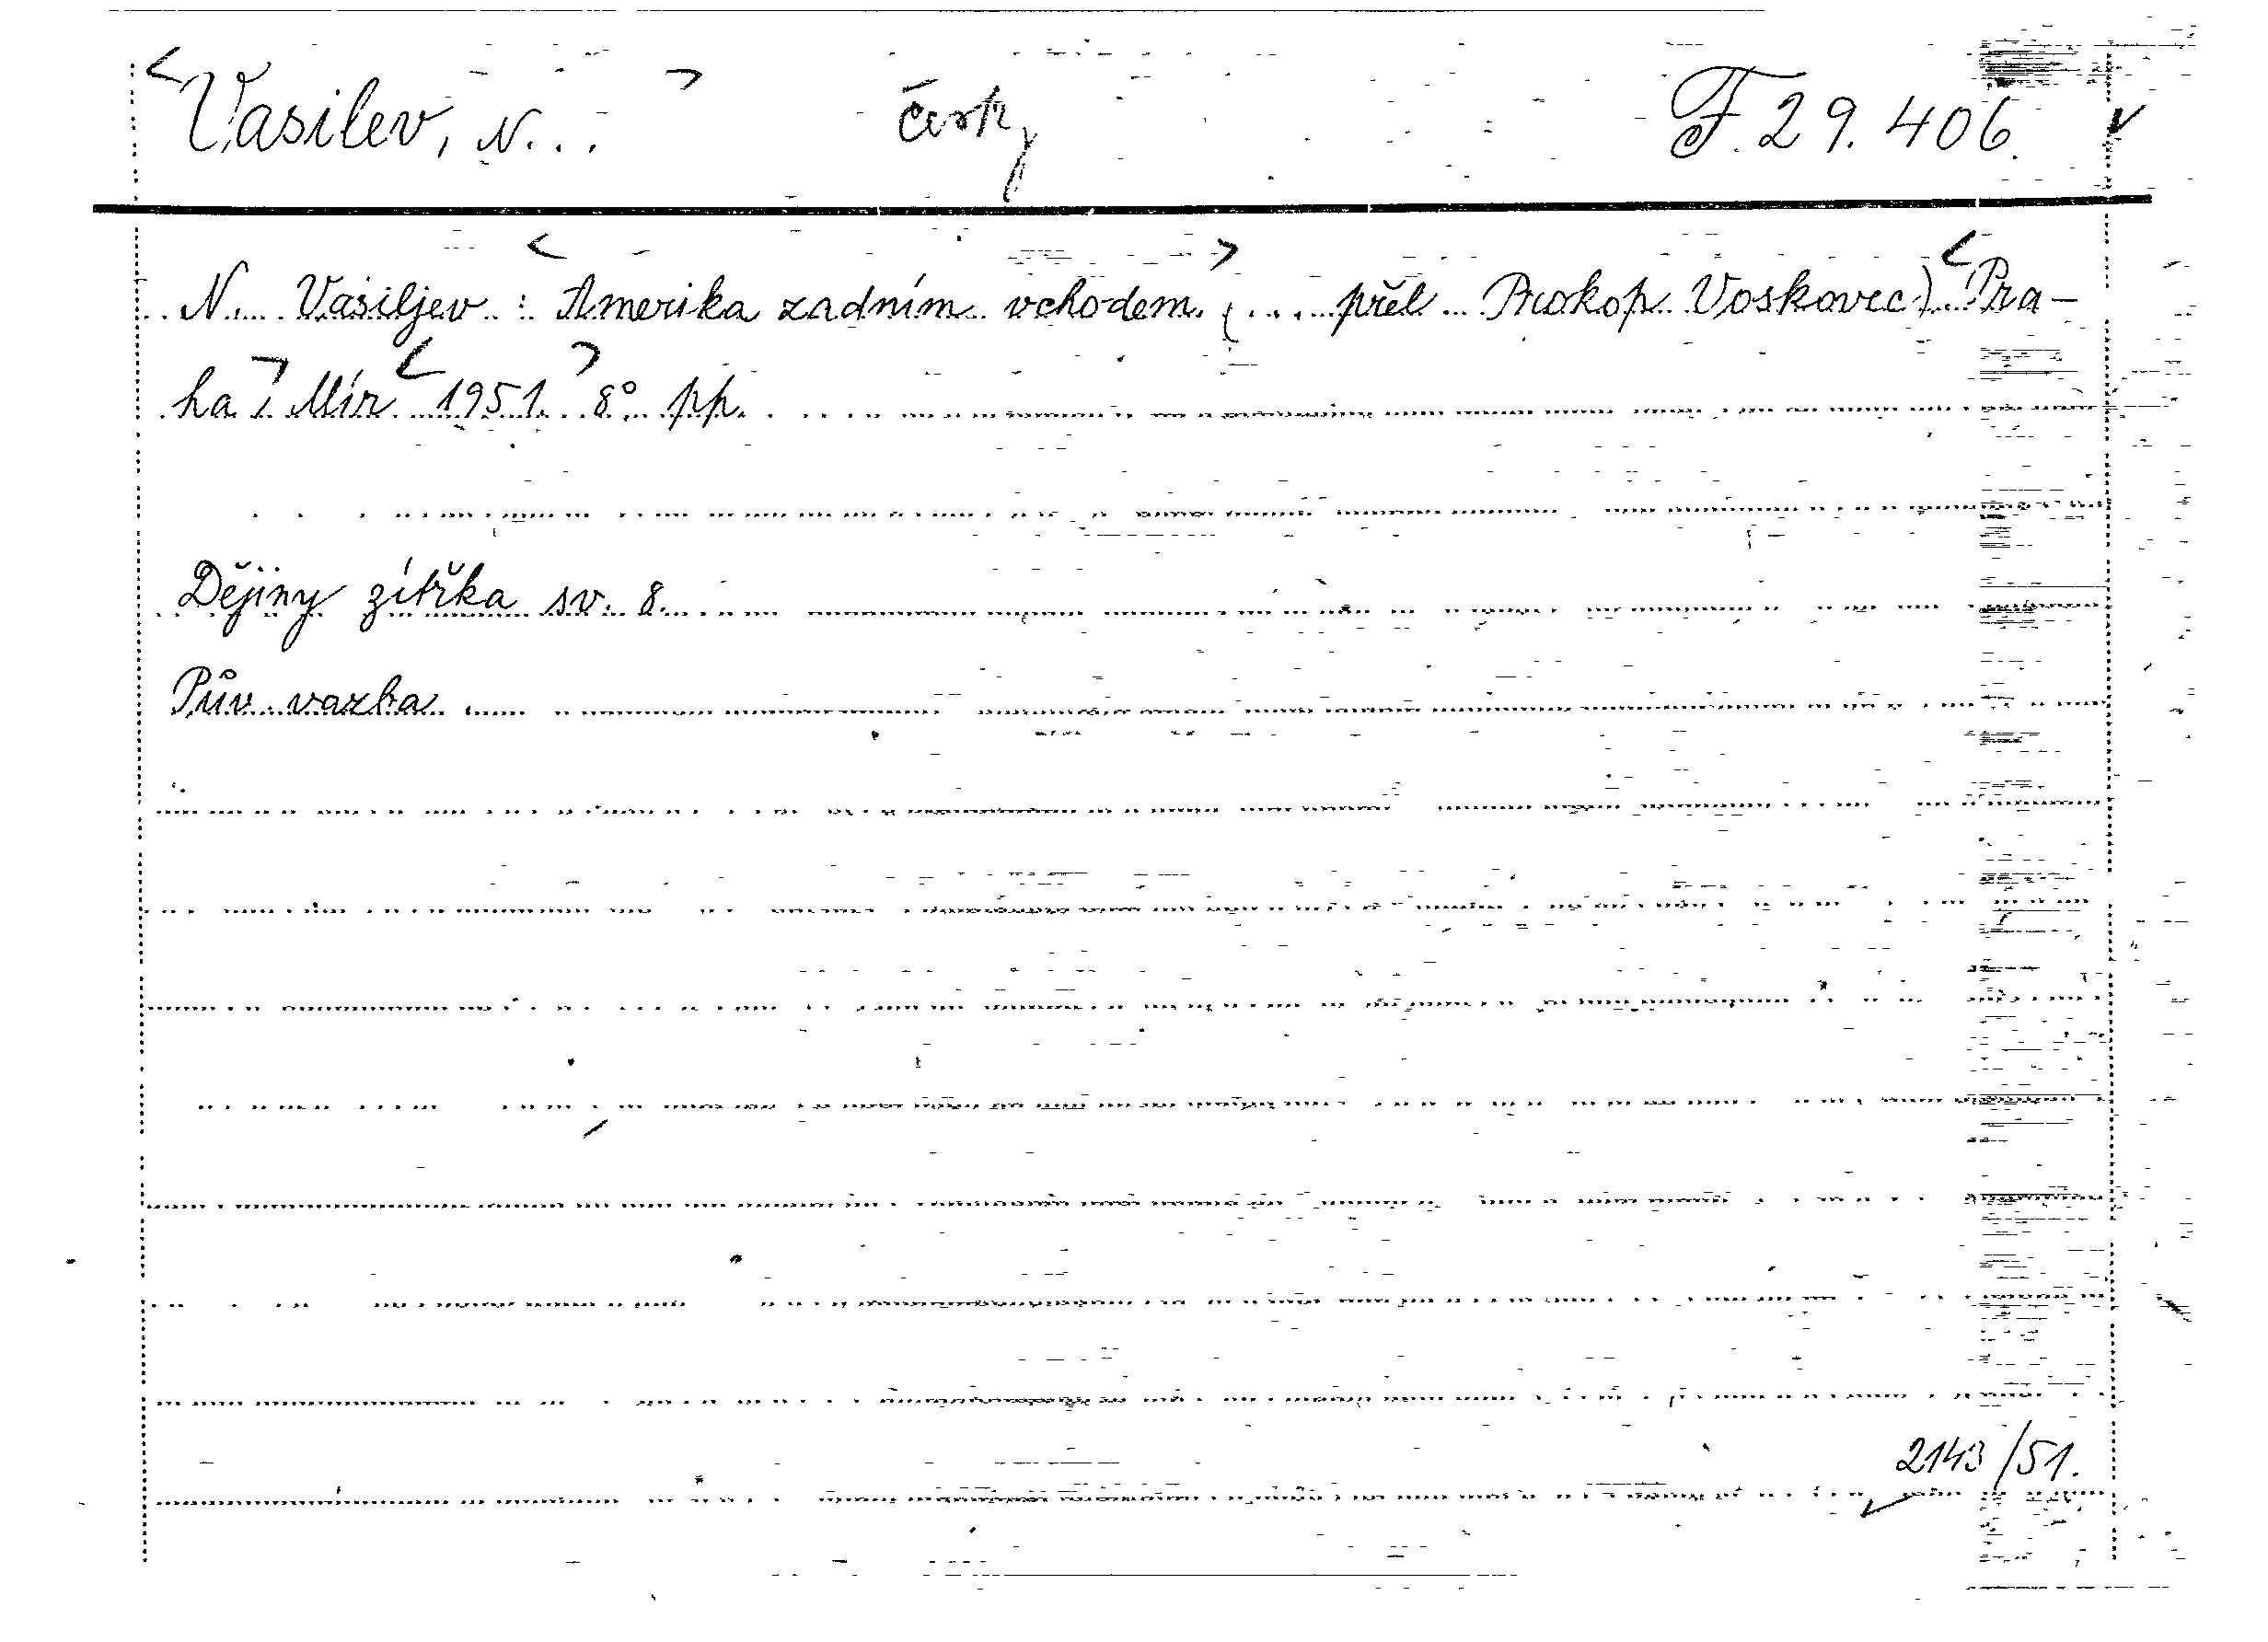 <Vasilev, N...> česky F 29.406. v
N. Vasiljev: <Amerika zadním vchodem.> (... přel. Prokop Voskovec). <Pra-
ha,> Mír <1951.> 8° pp.
Dějiny zítřka sv. 8.
Pův. vazba.
2143/51.